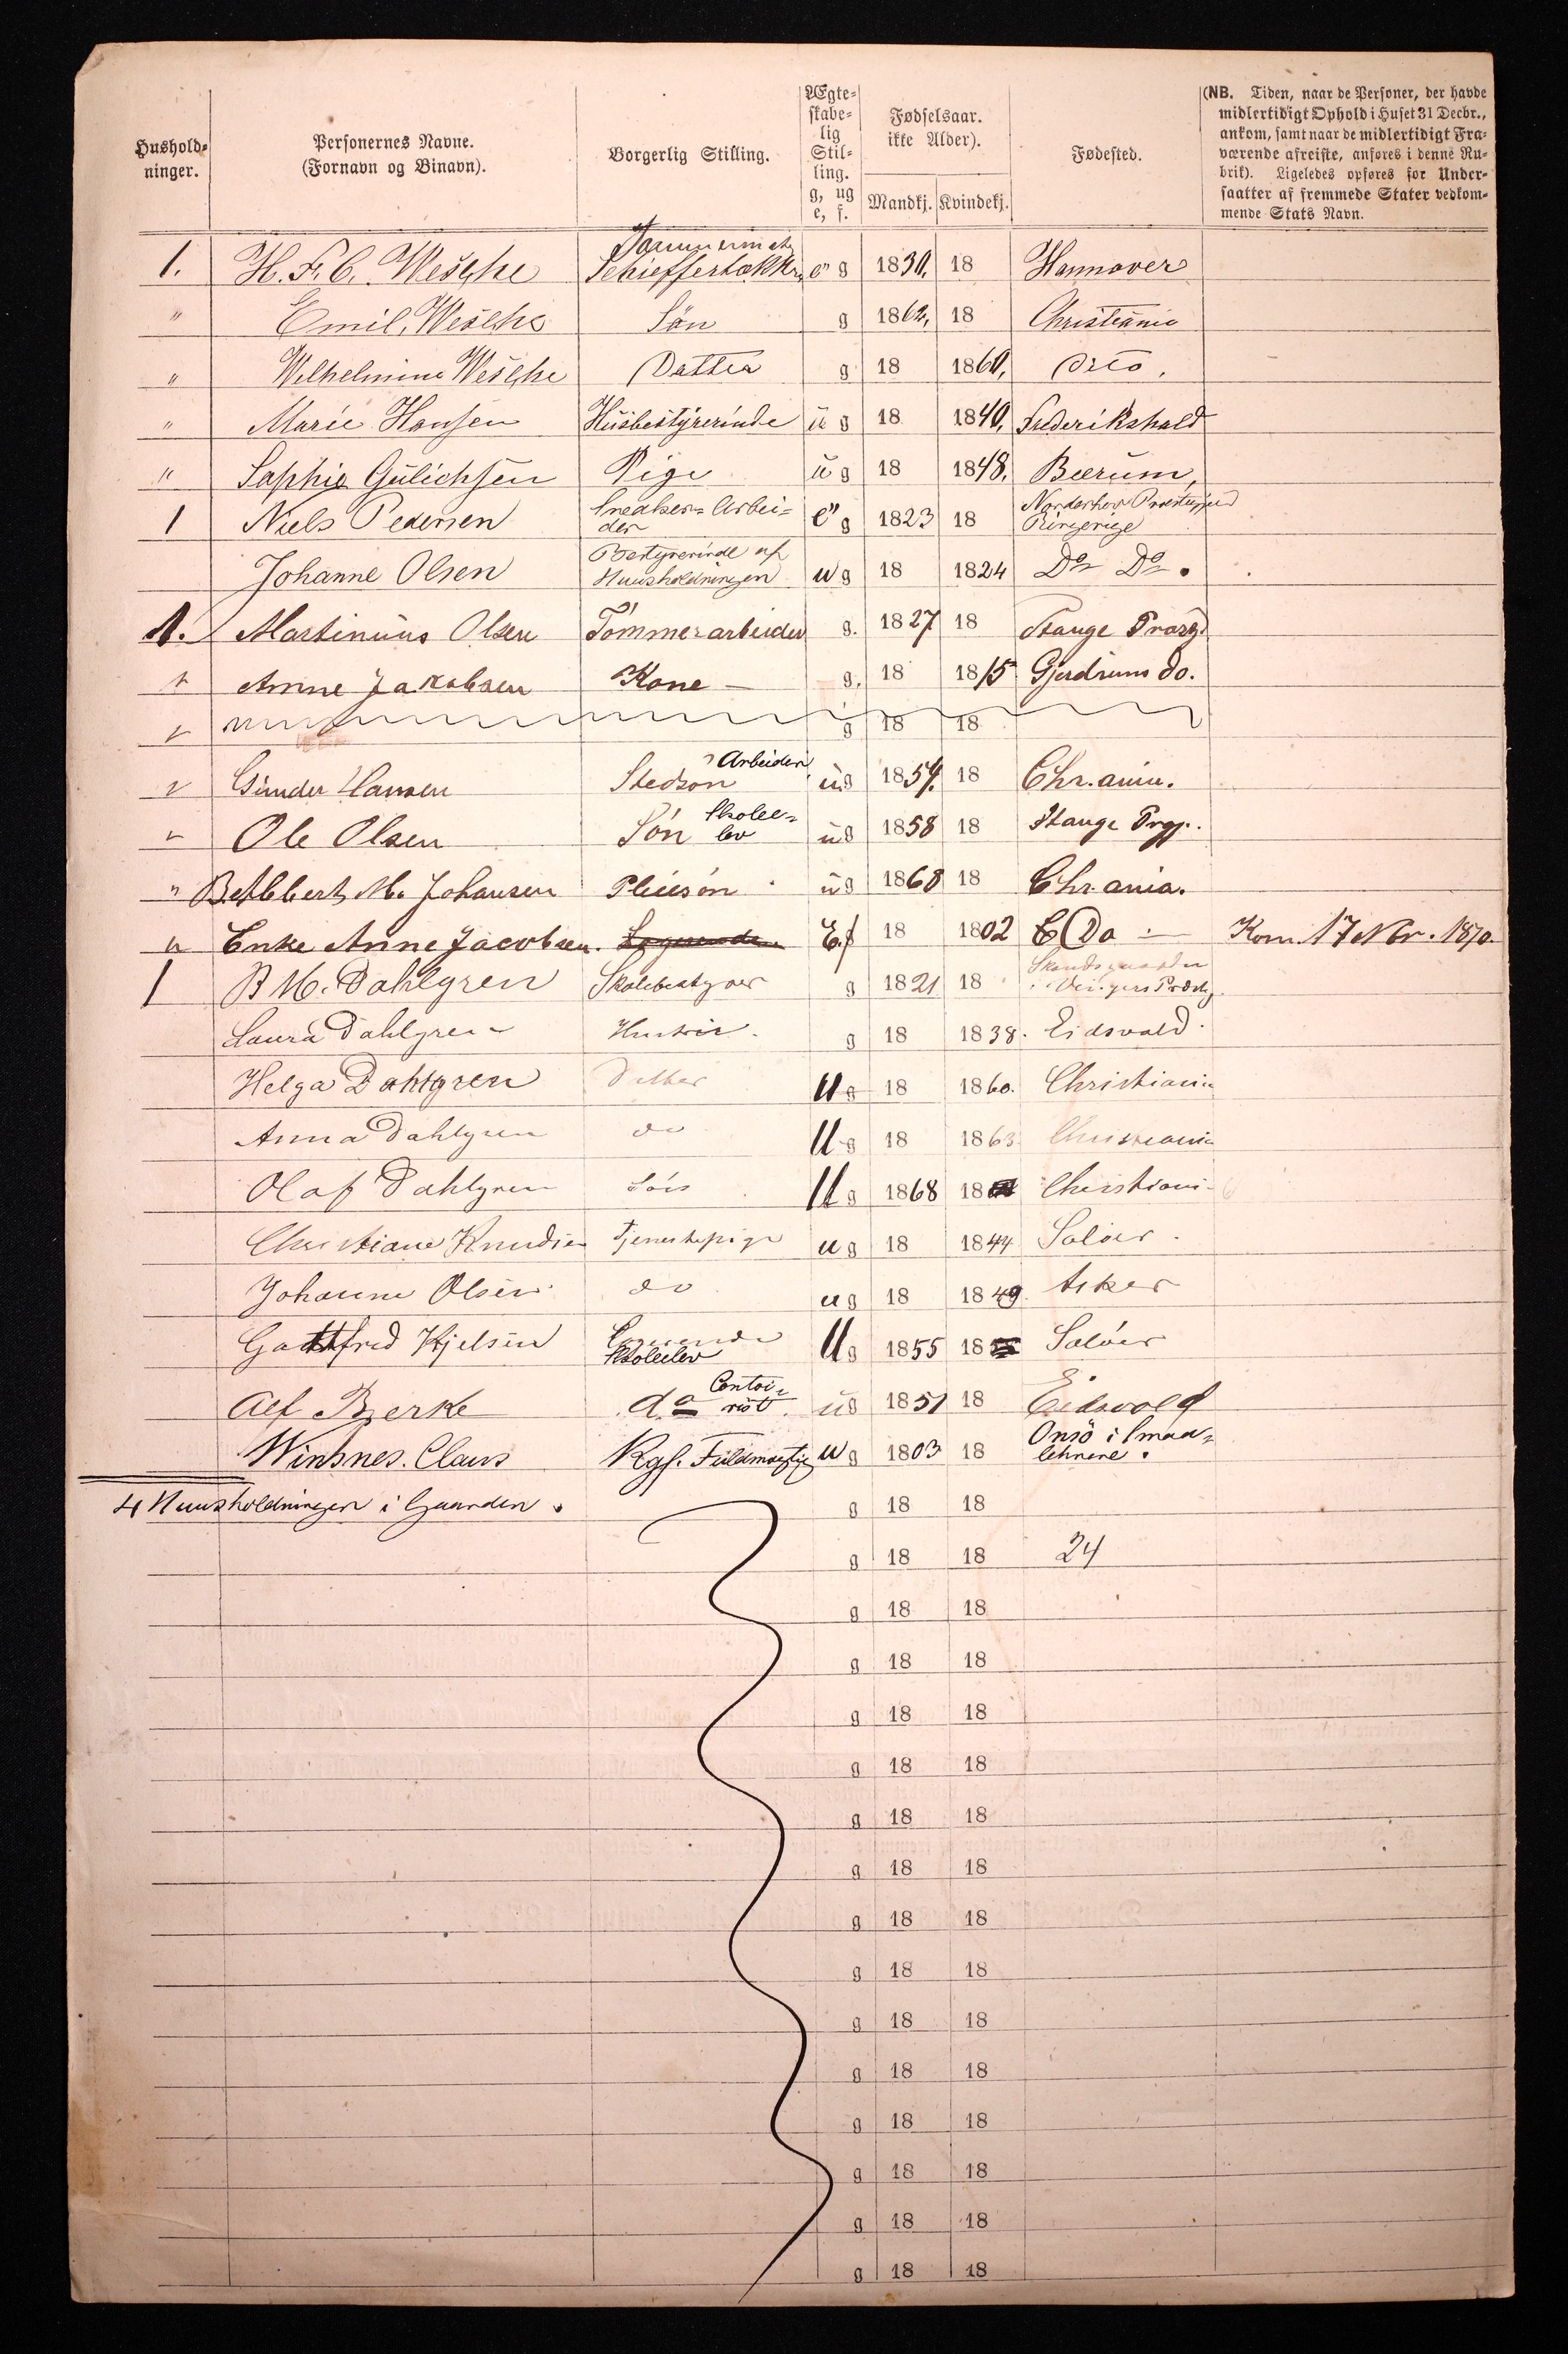 Hushold-
ninger.
Personernes Navne.
(Fornavn og Binavn).
Borgerlig Stilling.
Ægte-
skabe-
lig
Stil-
ling.
g, ug
e, f.
Fødselsaar.
ikke Alder).
Mandkj. Kvindekj.
Fødested.
(NB. Tiden, naar de Personer, der havde
midlertidigt Ophold i Huset 31 Decbr.,
ankom, samt naar de midlertidigt Fra-
værende afreiste, anføres i denne Ru-
brik). Ligeledes opføres for Under-
saatter af fremmede Stater vedkom-
mende Stats Navn.
1. H. F. C. Weschke e g 1830, 18 Hannover
" Emil, Weschke Sön g 1862, 18 Christiania
" Wilhelmine Weschke Datter g 18 1860, Dito,
" Marie Hansen Husbestyrerinde u g 18 1840, Frederikshald
" Sophie Gulichsen Pige u g 18 1848, Bærum,
1 Niels Pedersen Snedker-Arbei-
der e" g 1823 18 Norderhov Præstegjeld
Ringerige
Johanne Olsen Bestyrerinde af
Huusholdningen u g 18 1824 Do Do.
1. Martinus Olsen Tömmerarbeider g. 1827 18 Stange Præstg.
" Anne Jakobsen Kone – g. 18 1815 Gjerdrums do.
" g 18 18
" Gunder Hansen Stedsön Arbeider ug 1854. 18 Chr.ania.
" Ole Olsen Sön Skolee-
lev ug 1858 18 Stange Prgj.
" M. Johansen Pleiesön ug 1868 18 Chr.ania.
" Enke Anne Jacobsen. Logerende. E.f 18 1802 Do Kom. 17 Nbr. 1870.
1 B M. Dahlgren Skolebestyrer g 1821 18
Laura Dahlgren Hustru. g 18 1838. Eidsvold
Helga Dahlgren Datter U g 18 1860. Christiania
Anna Dahlgren do U g 18 1863. Christiania
Olaf Dahlgren Sön U g 1868 18 Christiania
Christiane Knudsen Tjenestepige u g 18 1844 Solöer.
Johanne Olsen do u g 18 1849. Asker
Gottfred Kjelsen Logerende
Skoleelev U g 1855 18 Solöer
Alf Bjerke do Contoi-
rist ug 1851 18 Eidsvold
Winsnes. Claus Kgl. Fuldmægtig u g 1803 18 Onsö i Smaa-
lehnene.
4 Huusholdninger i Gaarden. g 18 18
g 18 18 24
g 18 18
g 18 18
g 18 18
g 18 18
g 18 18
g 18 18
g 18 18
g 18 18
g 18 18
g 18 18
g 18 18
g 18 18
g 18 18
g 18 18